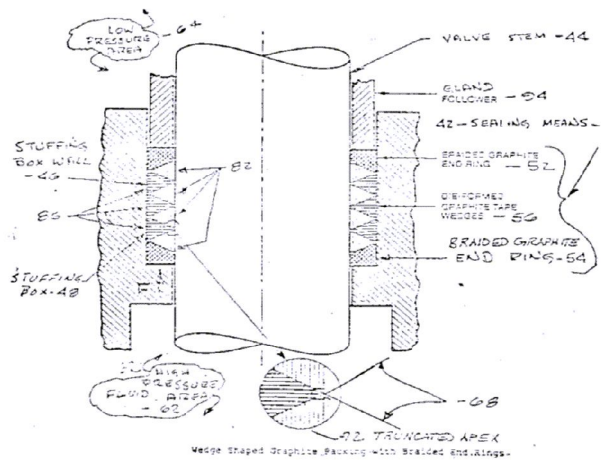 LOW
PRESSURE
AREA - 64
VALVE STEM - 44
GLAND
FOLLOWER - 94
42 - SEALING MEANS -
STUFFING
BOX WALL
- 46
82
BRAIDED GRAPHITE
END RING - 52
DIE-FORMED
GRAPHITE TAPE
WEDGES - 56
86
BRAIDED GRAPHITE
END RING - 54
STUFFING
BOX - 48
HIGH
PRESSURE
FLUID AREA
- 62
- 68
72 TRUNCATED APEX
Wedge Shaped Graphite Packing with Braided End Rings.